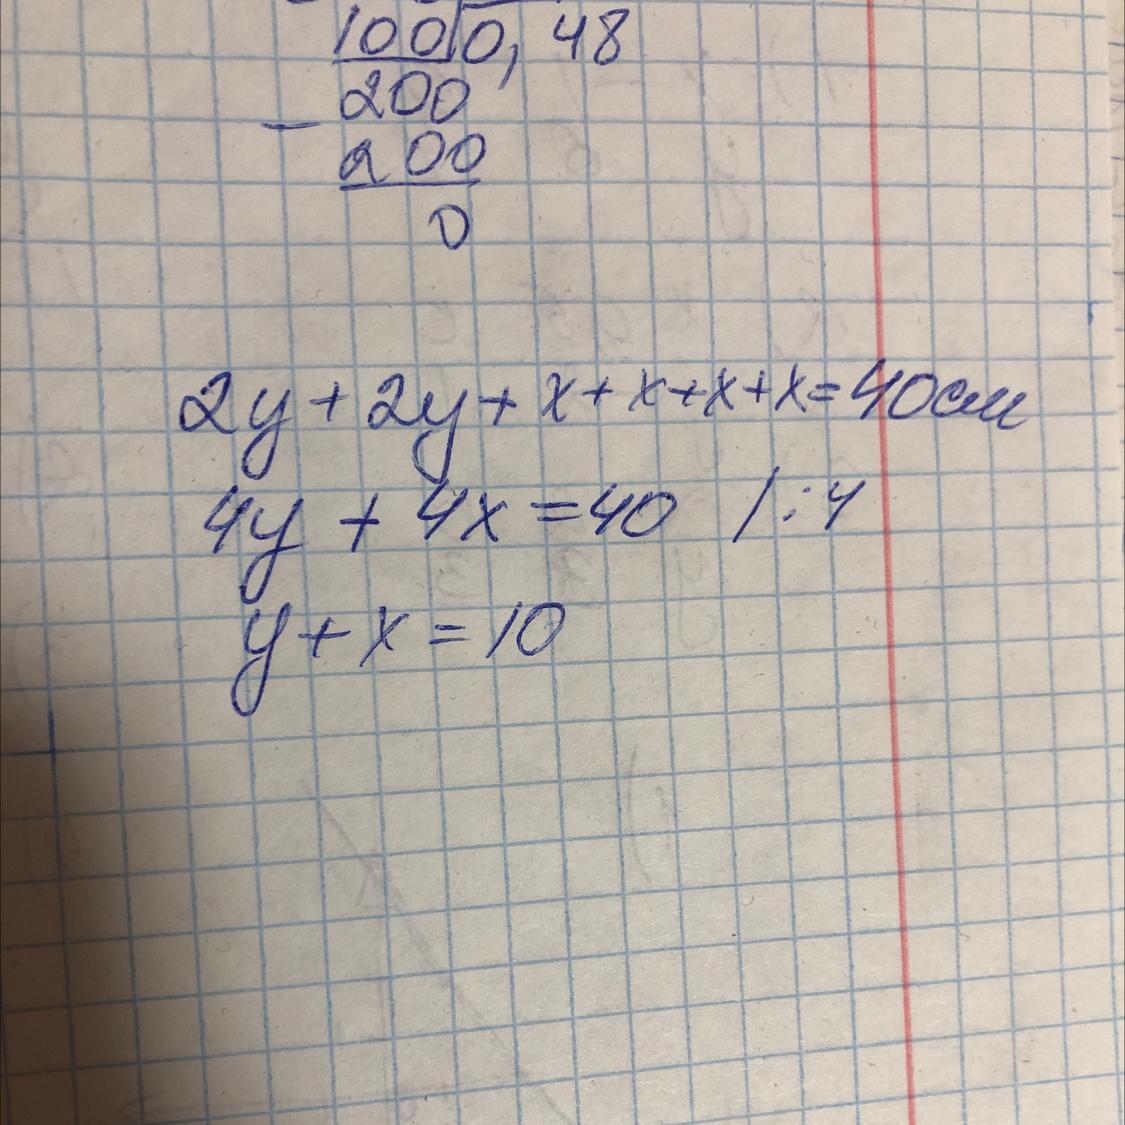 100|0,48
200
- 200
0
2y + 2y + x + x + x + x = 40см
4y + 4x = 40 /:4
y + x = 10